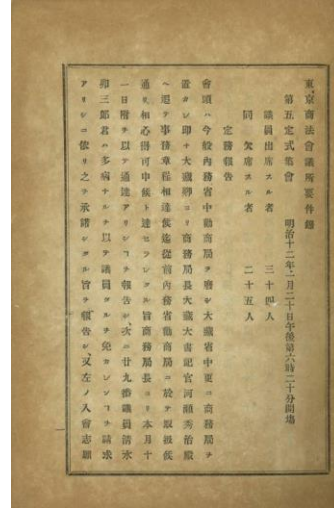 東京商法會議所要件錄
第五定式集會　明治十二年一月二十日午後第六時二十分開場
議員出席スル者　三十四人
同　欠席スル者　二十五人
定務報告
會頭ハ今般內務省中勸商局ヲ廢シ大藏省中更ニ商務局ヲ
置カレ即チ大藏卿ヨリ商務局長大藏大書記官河瀨秀治殿
ヘ迄ヲ事務章程相達候迄從前內務省勸商局ニ於テ取扱候
通リ相心得可申候ト達セラレタル旨商務局長ヨリ本月十
一日附ヲ以テ通達アリシコヲ報告シ次ニ廿九番議員清水
卯三郎君ハ多病ナルヲ以テ議員タルヲ免カレンコヲ請求
アリシニ依リ之ヲ承諾シタル旨ヲ報告シ又左ノ入會志願